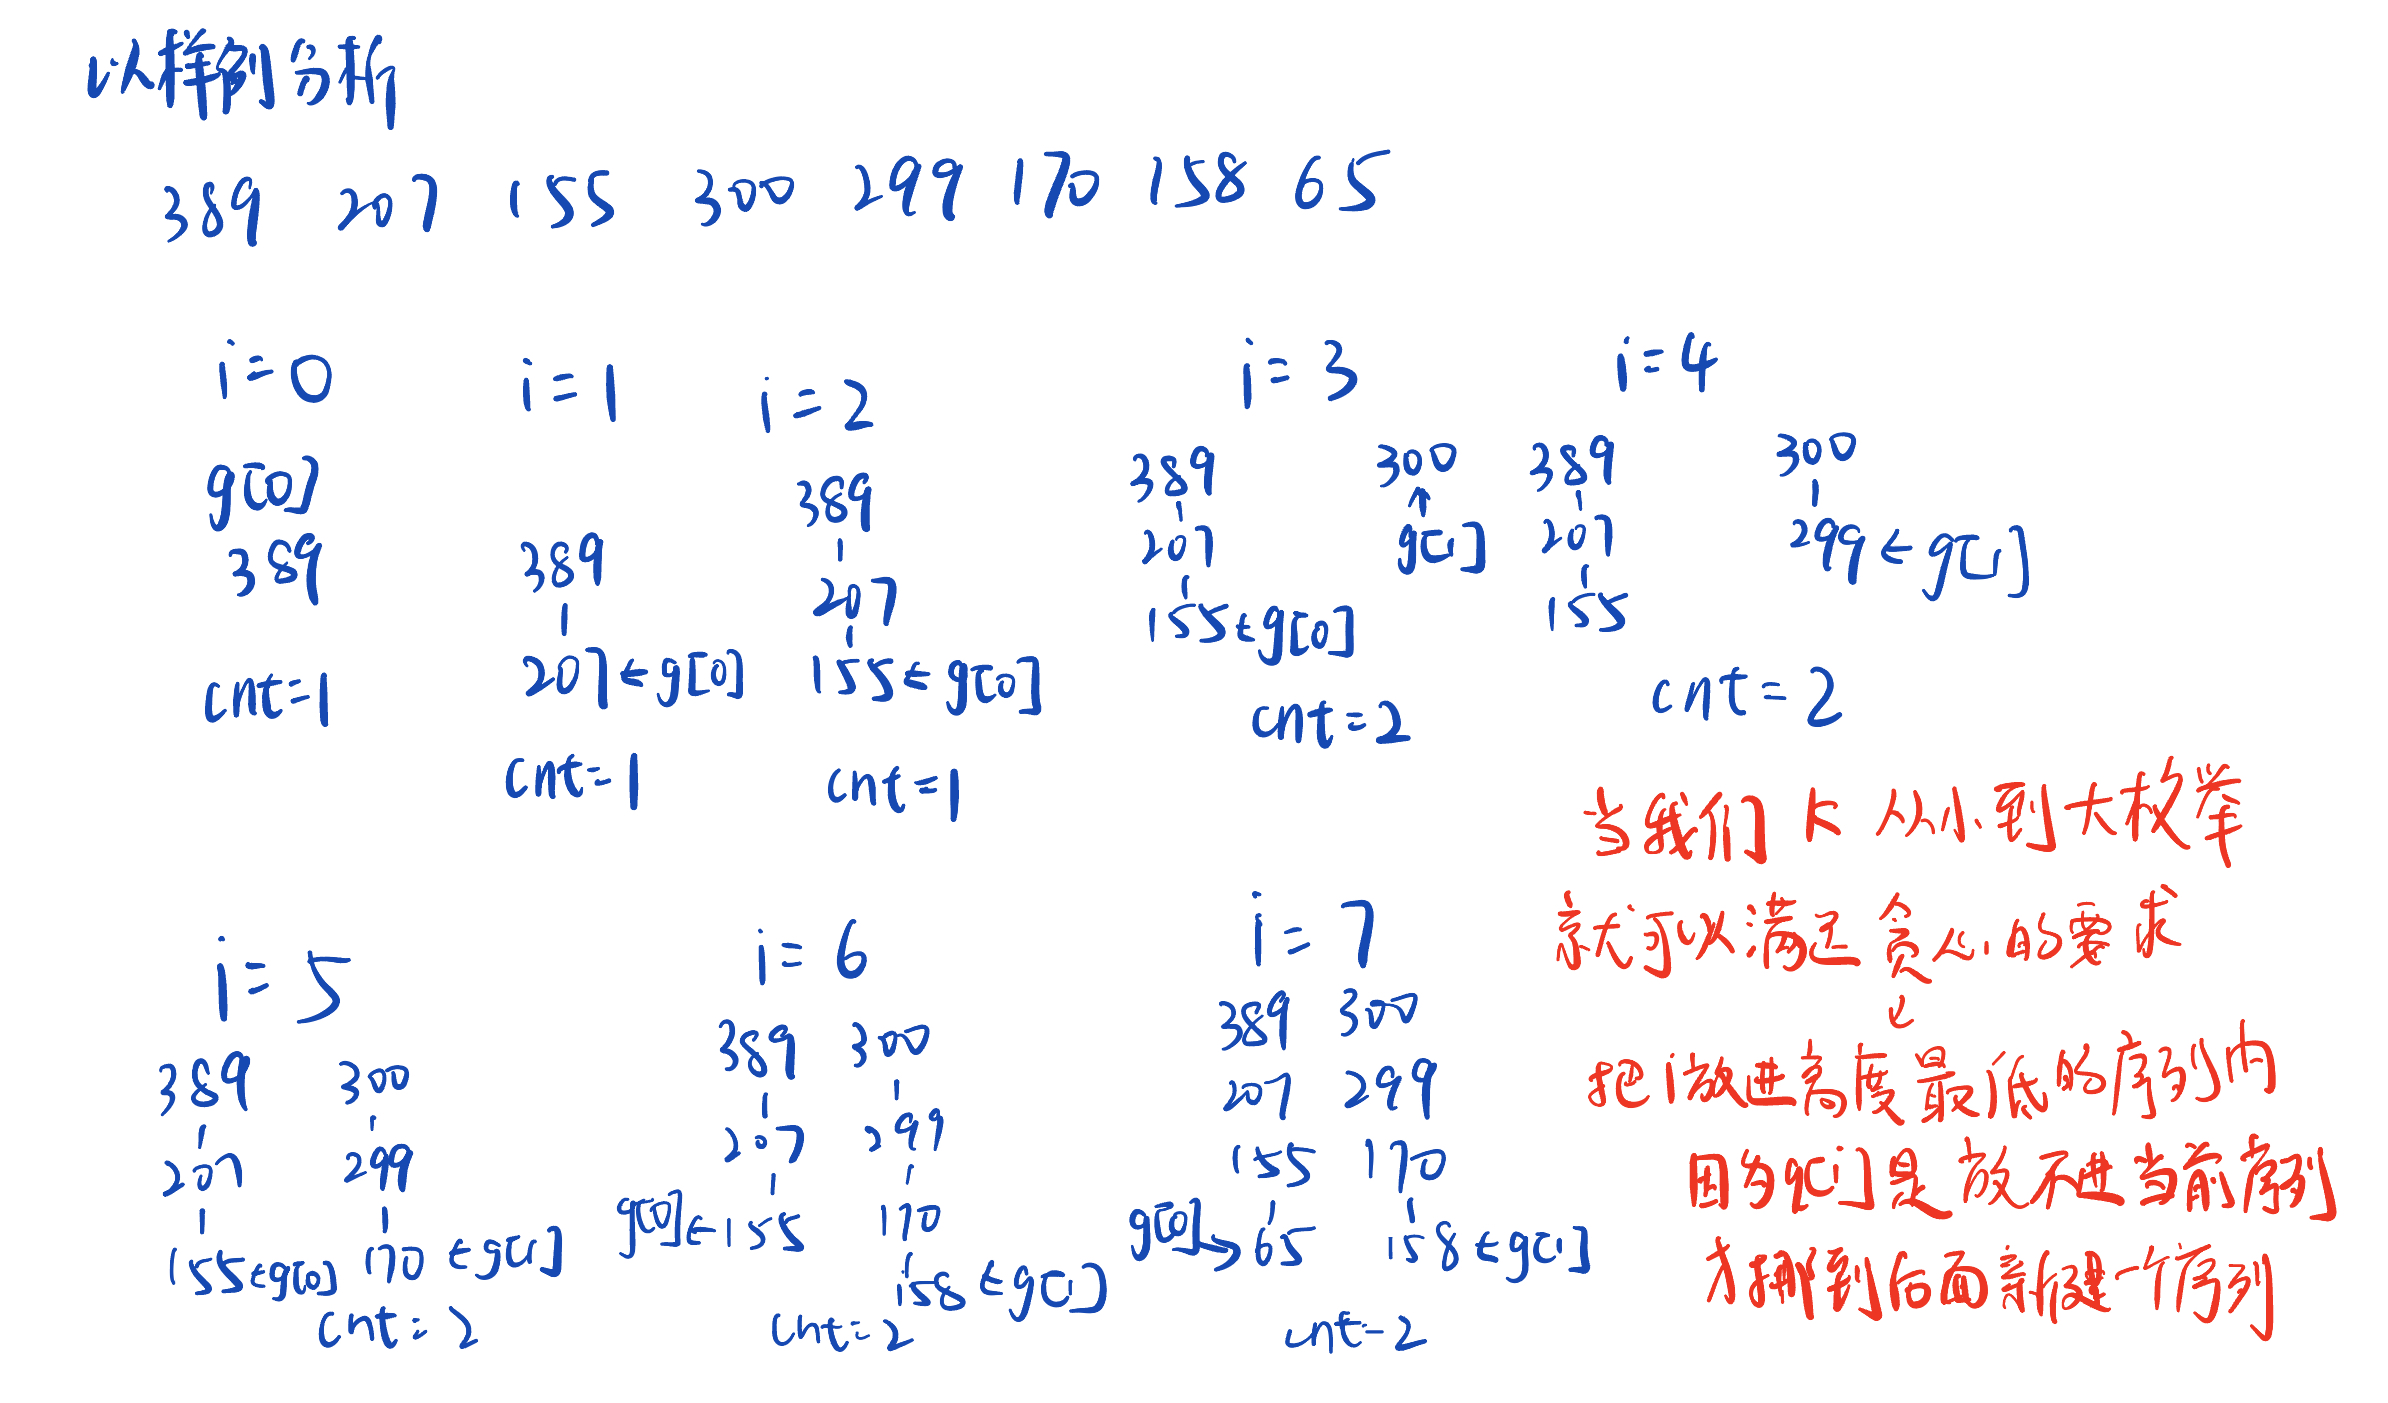 以样例分析
389 207 155 300 299 170 158 65
i=0
g[0]
389
cnt=1
i=1
389
207←g[0]
cnt=1
i=2
389
207
155←g[0]
cnt=1
i=3
389 300
207 g[1]
155←g[0]
cnt=2
i=4
389 300
207 299←g[1]
155
cnt=2
当我们 k 从小到大枚举
就可以满足贪心的要求
把i放进高度最低的序列内
因为g[i]是放不进当前序列
才挪到后面新建一个序列
i=5
389 300
207 299
155←g[0] 170←g[1]
cnt=2
i=6
389 300
207 299
g[0]←155 170
158←g[1]
cnt=2
i=7
389 300
207 299
155 170
g[0]→65 158←g[1]
cnt=2